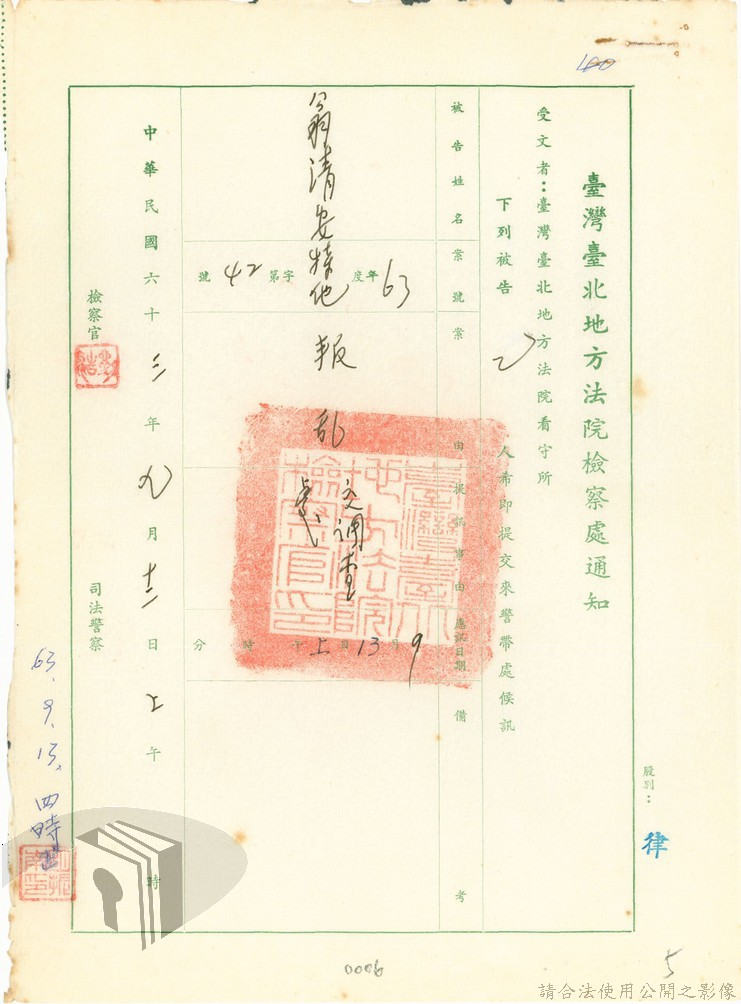 100
臺灣臺北地方法院檢察處通知
受文者：臺灣臺北地方法院看守所
下列被告
人希即提交來警帶處候訊
股別：
律
被告姓名
翁清安
案號
63年度
字第42號
案由
叛乱
提訊事由
交調查
應訊日期
9月13日上午 時 分
備考
中華民國六十三年九月十二日上午 時
檢察官
司法警察
63.9.13.四時
臺灣臺北地方法院檢察官印
0006
5
請合法使用公開之影像